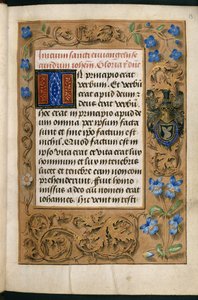 Inicium sancti euuangelii se
cundum iohem. Gloria t dne
IN principio erat
verbum. Et verbu
erat apud deum :
deus erat verbum.
Hoc erat in principio apud de
um omnia per ipsum facta
sunt et sine ipo factum est
nichil, Quod factum est in
ipso vita erat et vita erat lux
hominum et lux in tenebris
lucet et tenebre eam non com
prehenderunt. fuit homo
missus a deo cui nomen erat
iohannes. Hic venit in testi